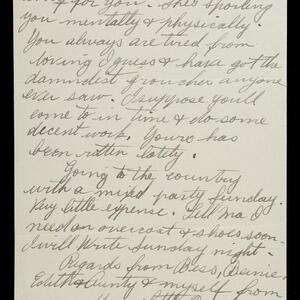 for you. She's spoiling
you mentally & physically.
You always are tired from
loving I guess & have got the
damndest grouches anyone
ever saw. I suppose you'll
come to in time & do some
decent work. Yours has
been rotten lately.
Going to the country
with a mixed party Sunday.
Very little expense. Tell Ma I
need an overcoat & shoes soon.
I will write Sunday night.
Regards from Bess, Bernie,
Edith & Aunty & myself from